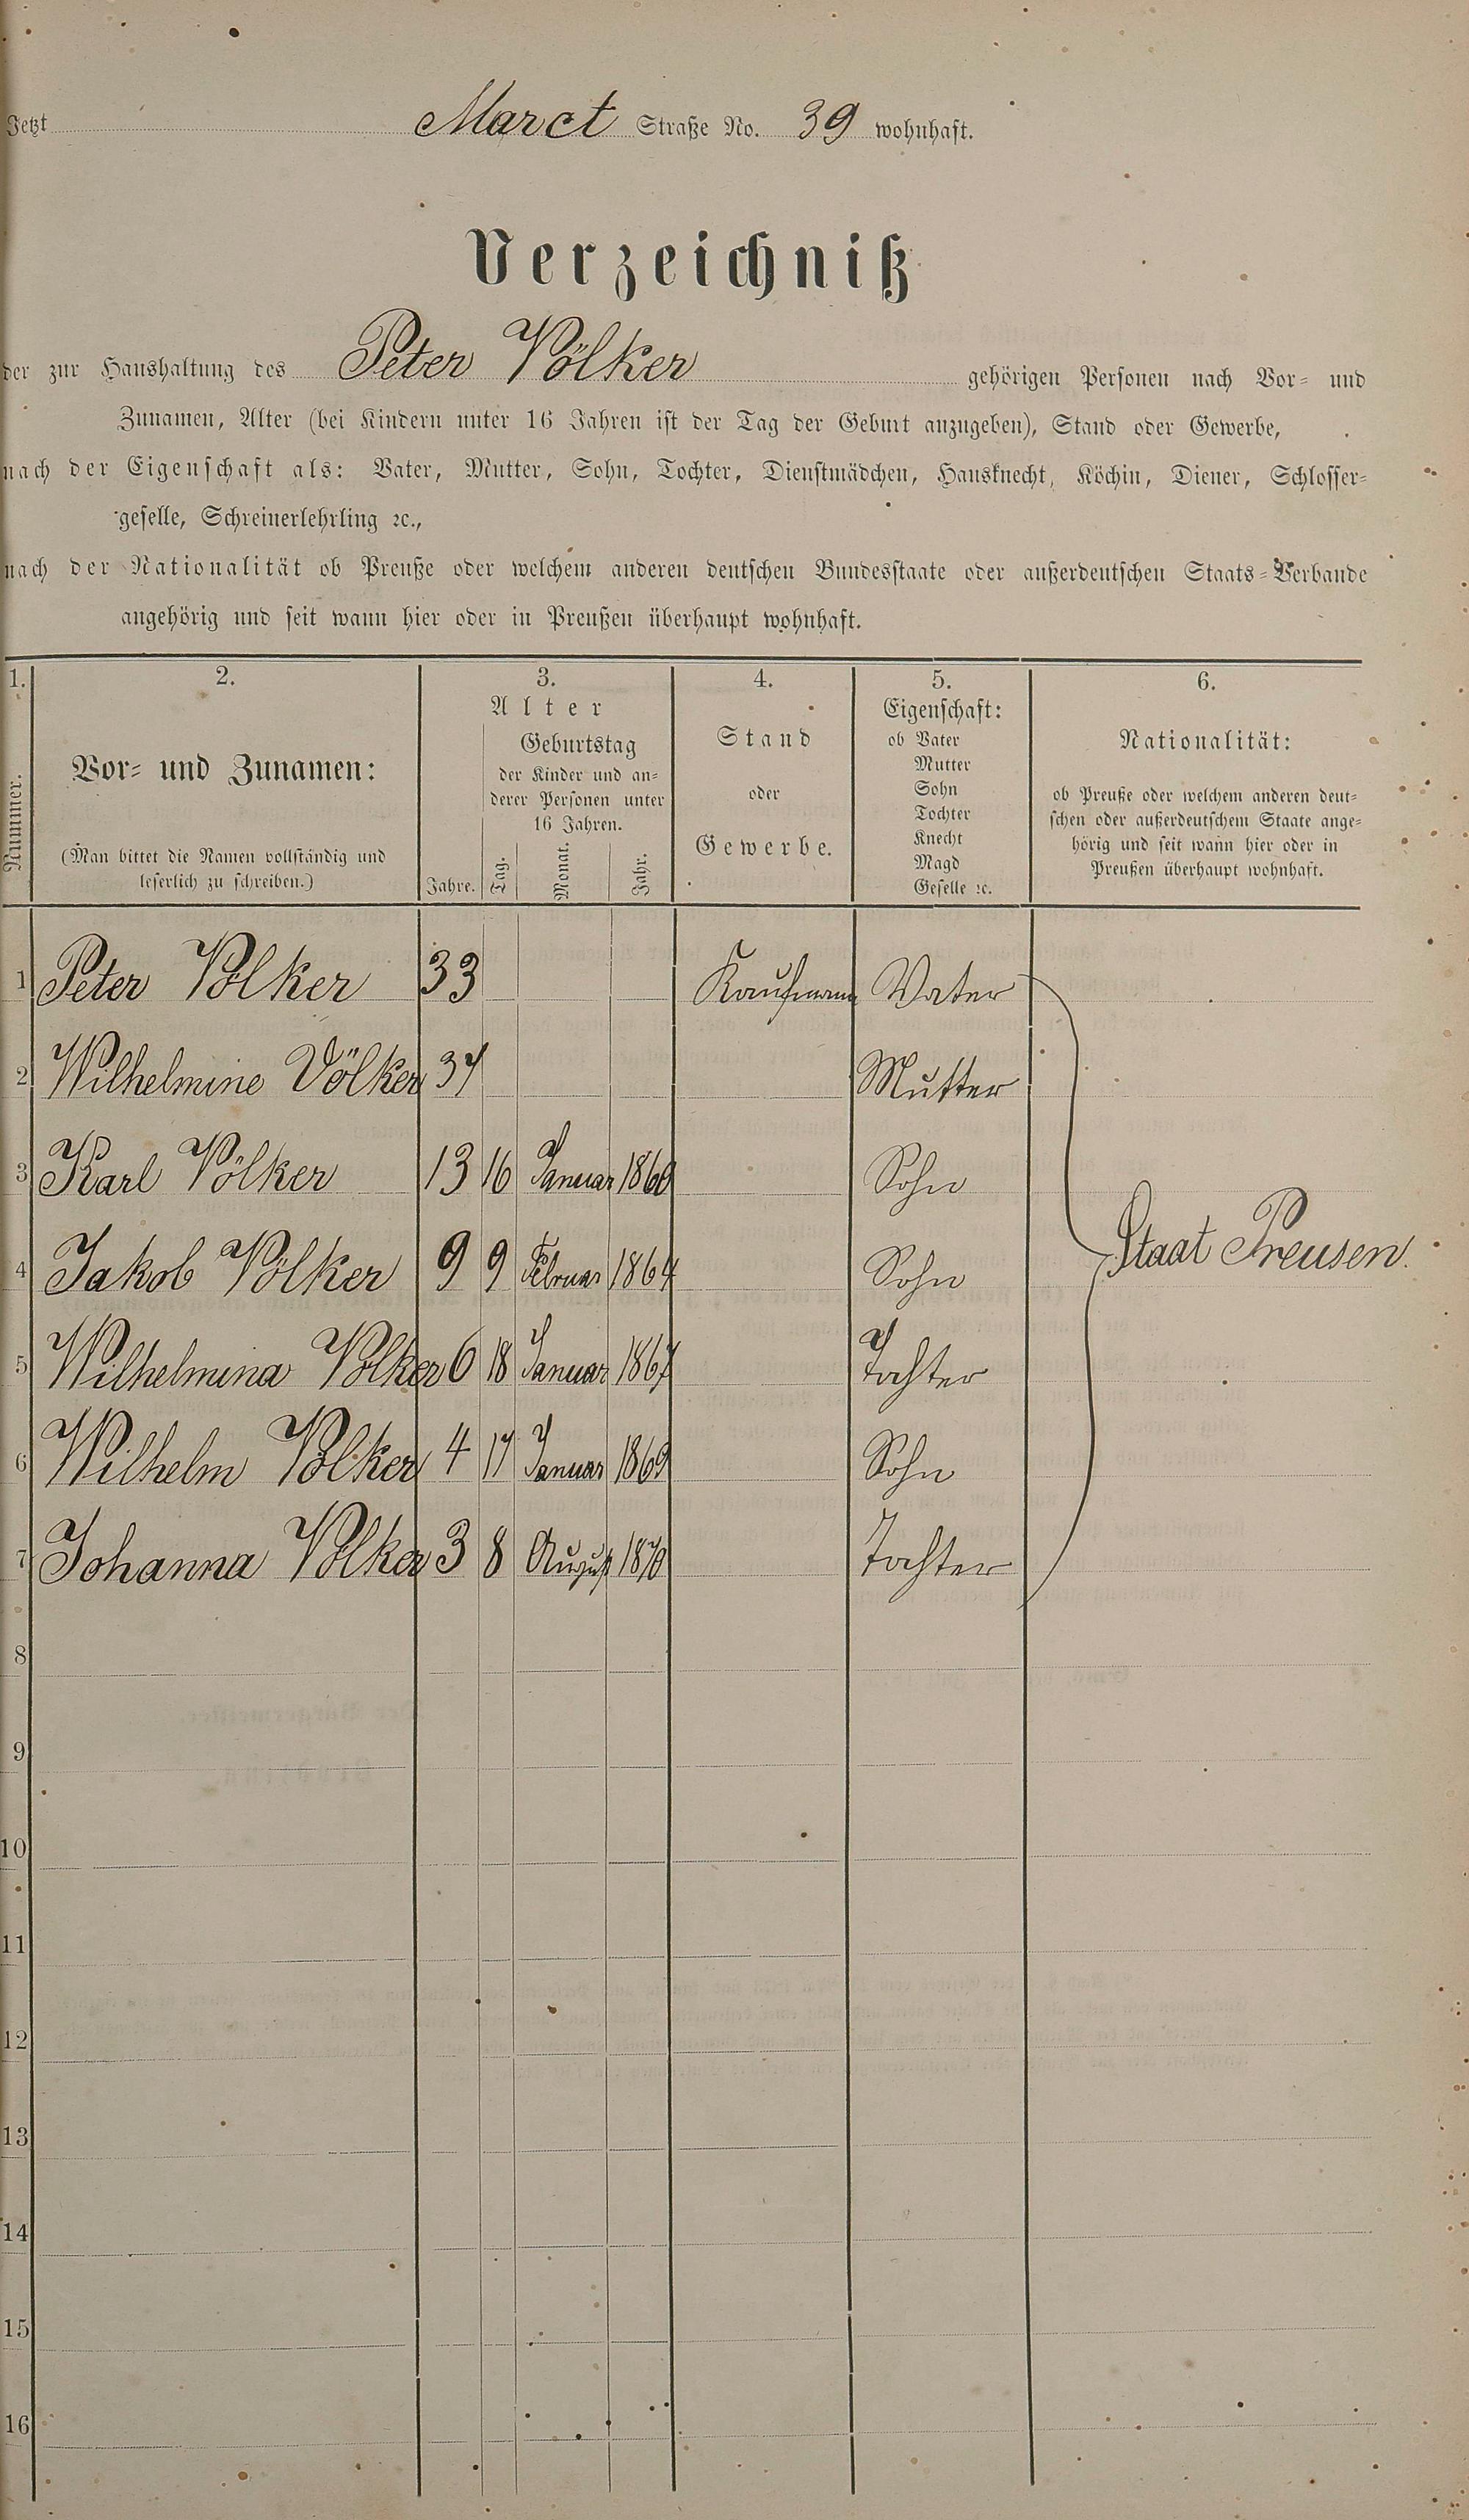 Jetzt Marct Straße No. 39 wohnhaft.
Verzeichniß
der zur Haushaltung des Peter Völker gehörigen Personen nach Vor- und
Zunamen, Alter (bei Kindern unter 16 Jahren ist der Tag der Geburt anzugeben), Stand oder Gewerbe,
nach der Eigenschaft als: Vater, Mutter, Sohn, Tochter, Dienstmädchen, Hausknecht, Köchin, Diener, Schlosser-
geselle, Schreinerlehrling ꝛc.,
nach der Nationalität ob Preuße oder welchem anderen deutschen Bundesstaate oder außerdeutschen Staats-Verbande
angehörig und seit wann hier oder in Preußen überhaupt wohnhaft.
1. 2. 3. 4. 5. 6.
Nummer.
Vor- und Zunamen:
(Man bittet die Namen vollständig und
leserlich zu schreiben.)
Alter
Geburtstag
der Kinder und an-
derer Personen unter
16 Jahren.
Jahre. Tag. Monat. Jahr.
Stand
oder
Gewerbe.
Eigenschaft:
ob Vater
Mutter
Sohn
Tochter
Knecht
Magd
Geselle ꝛc.
Nationalität:
ob Preuße oder welchem anderen deut-
schen oder außerdeutschem Staate ange-
hörig und seit wann hier oder in
Preußen überhaupt wohnhaft.
1 Peter Völker 33 Kaufmann Vater
2 Wilhelmine Völker 37 Mutter
3 Karl Völker 13 16 Januar 1860 Sohn
Staat Preusen.
4 Jakob Völker 9 9 Februar 1864 Sohn
5 Wilhelmina Völker 6 18 Januar 1867 Tochter
6 Wilhelm Völker 4 17 Januar 1869 Sohn
7 Johanna Völker 3 8 August 1870 Tochter
8
9
10
11
12
13
14
15
16